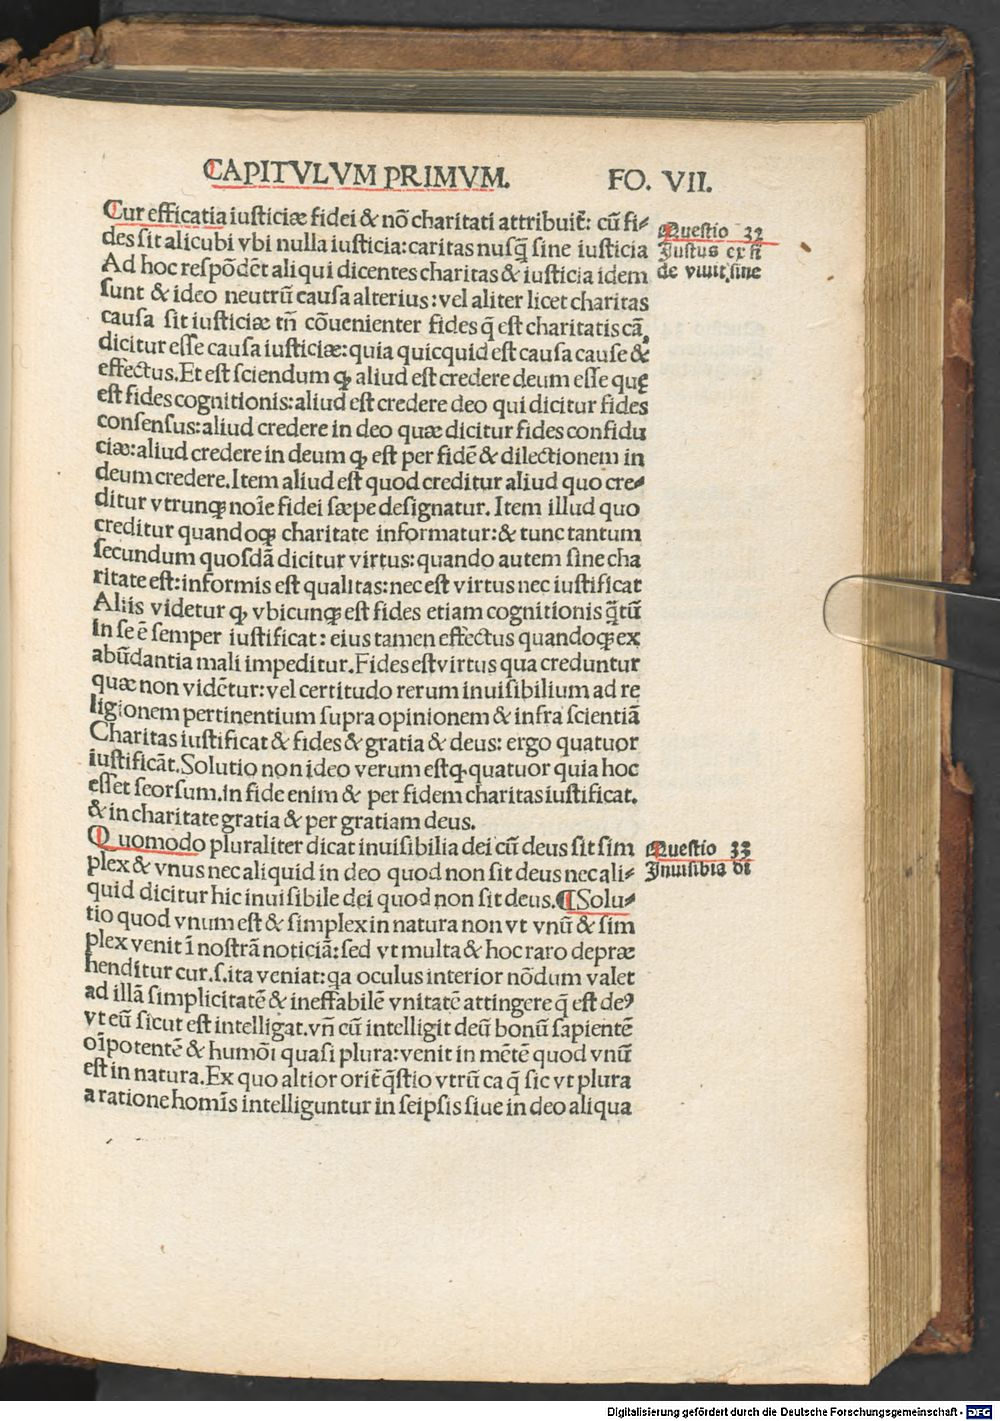 CAPITVLVM PRIMVM. FO. VII.
Cur efficatia iusticiæ fidei & nō charitati attribuit̃: cū fi⸗
des sit alicubi vbi nulla iusticia: caritas nusq̃ sine iusticia
Ad hoc respōdēt aliqui dicentes charitas & iusticia idem
sunt & ideo neutrū causa alterius: vel aliter licet charitas
causa sit iusticiæ tñ cōuenienter fides q̃ est charitatis cã,
dicitur esse causa iusticiæ: quia quicquid est causa cause &
effectus. Et est sciendum ꝙ aliud est credere deum esse quę
est fides cognitionis: aliud est credere deo qui dicitur fides
consensus: aliud credere in deo quæ dicitur fides confidu
ciæ: aliud credere in deum ꝙ est per fidē & dilectionem in
deum credere. Item aliud est quod creditur aliud quo cre⸗
ditur vtrunqꝫ noīe fidei sæpe designatur. Item illud quo
creditur quandoqꝫ charitate informatur: & tunc tantum
secundum quosdā dicitur virtus: quando autem sine cha
ritate est: informis est qualitas: nec est virtus nec iustificat
Aliis videtur ꝙ vbicunqꝫ est fides etiam cognitionis q̃tū
in se ē semper iustificat: eius tamen effectus quandoqꝫ ex
abūdantia mali impeditur. Fides est virtus qua creduntur
quæ non vidētur: vel certitudo rerum inuisibilium ad re
ligionem pertinentium supra opinionem & infra scientiā
Charitas iustificat & fides & gratia & deus: ergo quatuor
iustificāt. Solutio non ideo verum est ꝙ quatuor quia hoc
esset seorsum. In fide enim & per fidem charitas iustificat.
& in charitate gratia & per gratiam deus.
Quomodo pluraliter dicat inuisibilia dei cū deus sit sim
plex & vnus nec aliquid in deo quod non sit deus nec ali⸗
quid dicitur hic inuisibile dei quod non sit deus. ¶ Solu⸗
tio quod vnum est & simplex in natura non vt vnū & sim
plex venit ī nostrā noticiā: sed vt multa & hoc raro depræ
henditur cur .s. ita veniat: qa oculus interior nōdum valet
ad illā simplicitatē & ineffabilē vnitatē attingere q̃ est deꝰ
vt eū sicut est intelligat. vñ cū intelligit deū bonū sapientē
oīpotentē & humōi quasi plura: venit in mētē quod vnū
est in natura. Ex quo altior orit̃ q̃stio vtrū ea q̃ sic vt plura
a ratione homīs intelliguntur in seipsis siue in deo aliqua
Questio 32
Justus ex fi
de viuit, sine
Questio 33
Inuisibia di
Digitalisierung gefördert durch die Deutsche Forschungsgemeinschaft - DFG